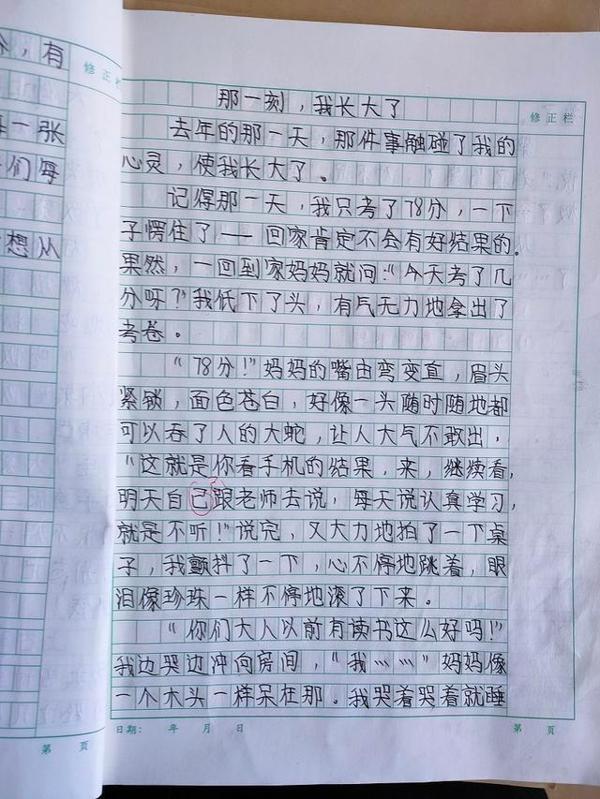 分，有
每一张
们每
想从
修正栏
第 页
那一刻，我长大了
去年的那一天，那件事触碰了我的
心灵，使我长大了。
记得那一天，我只考了78分，一下
子愣住了——回家肯定不会有好结果的。
果然，一回到家妈妈就问：“今天考了几
分呀？”我低下了头，有气无力地拿出了
考卷。
“78分！”妈妈的嘴由弯变直，眉头
紧锁，面色苍白，好像一头随时随地都
可以吞了人的大蛇，让人大气不敢出，
“这就是你看手机的结果，来，继续看，
明天自己跟老师去说，每天说认真学习，
就是不听！”说完，又大力地拍了一下桌
子，我颤抖了一下，心不停地跳着，眼
泪像珍珠一样不停地滚了下来。
“你们大人以前有读书这么好吗！”
我边哭边冲向房间，“我……”妈妈像
一个木头一样呆在那。我哭着哭着就睡
日期： 年 月 日
修正栏
第 页